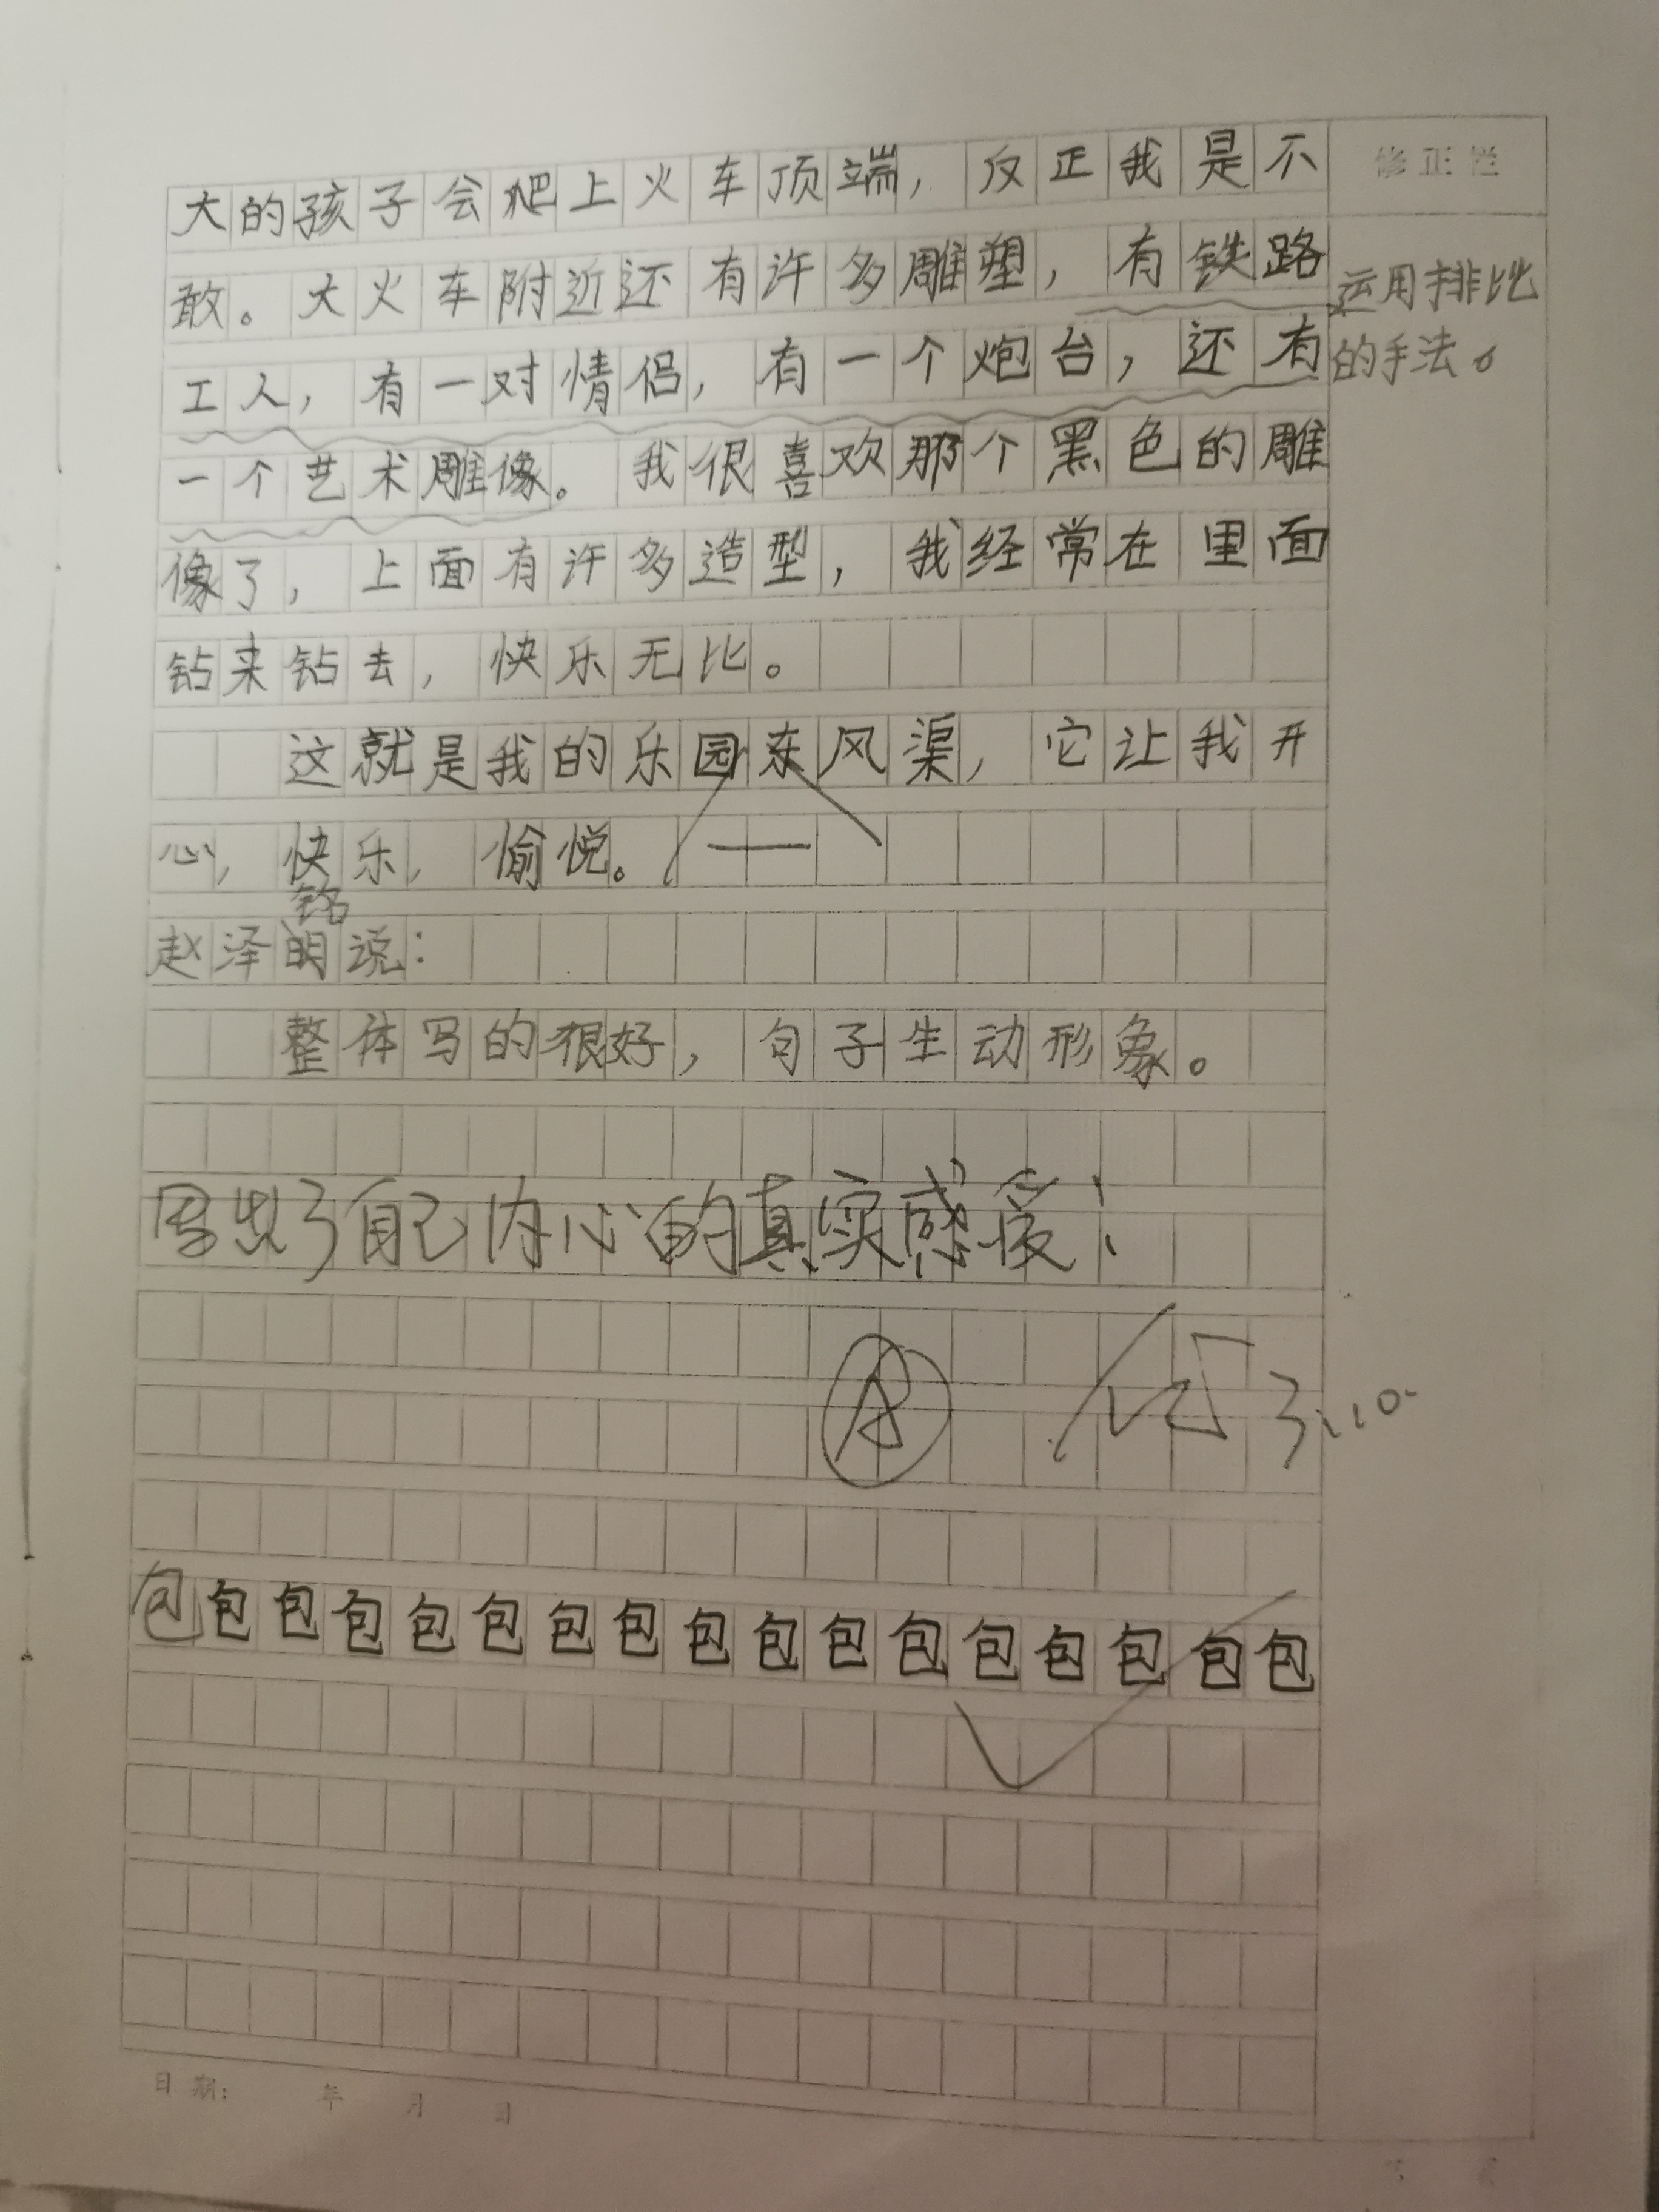 修正栏
大的孩子会爬上火车顶端，反正我是不
敢。大火车附近还有许多雕塑，有铁路
运用排比
工人，有一对情侣，有一个炮台，还有
的手法。
一个艺术雕像。我很喜欢那个黑色的雕
像了，上面有许多造型，我经常在里面
钻来钻去，快乐无比。
这就是我的乐园东风渠，它让我开
心，快乐，愉悦。
铭
赵泽明说：
整体写的很好，句子生动形象。
写出了自己内心的真实感受！
A
3.10.
包包包包包包包包包包包包包包包包包
日期： 年 月 日